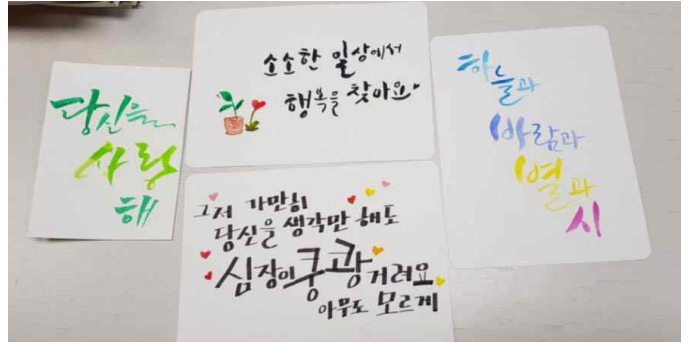 당신을
사랑
해
소소한 일상에서
행복을 찾아요
그저 가만히
당신을 생각만 해도
심장이 쿵쾅거려요
아무도 모르게
하늘과
바람과
별과
시